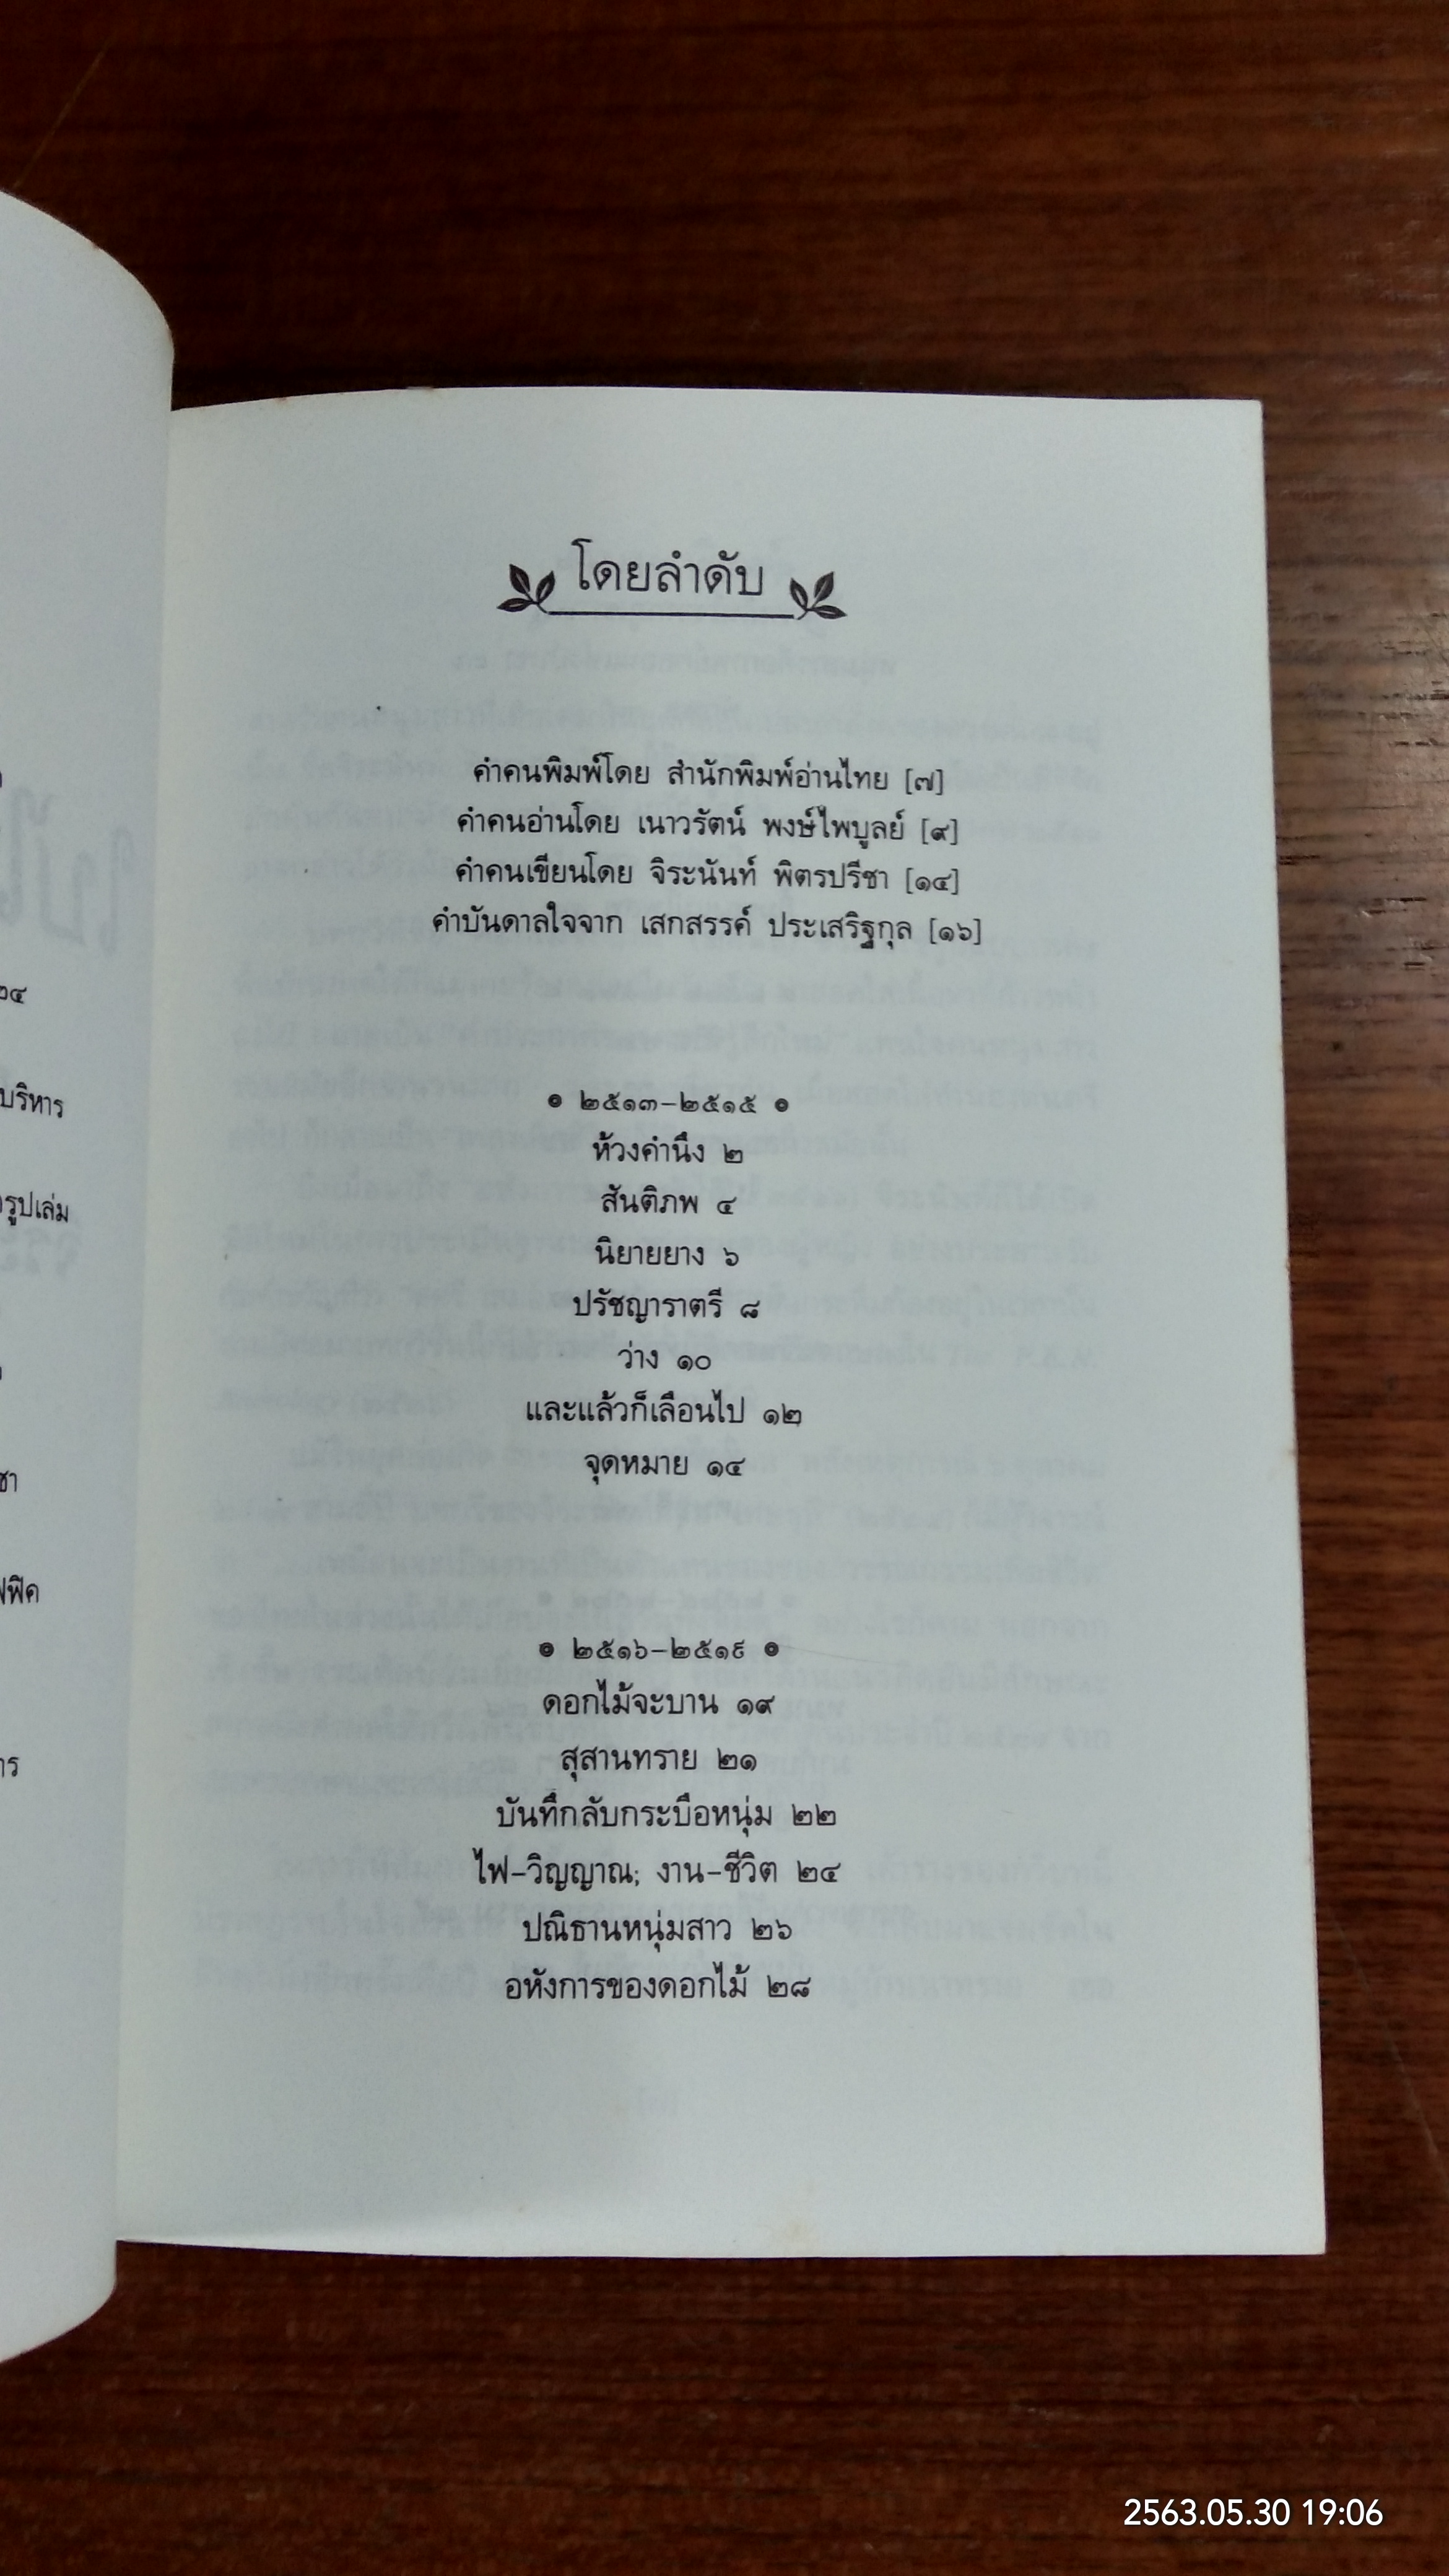 โดยลำดับ
คำคนพิมพ์โดย สำนักพิมพ์อ่านไทย [๗]
คำคนอ่านโดย เนาวรัตน์ พงษ์ไพบูลย์ [๙]
คำคนเขียนโดย จิระนันท์ พิตรปรีชา [๑๔]
คำบันดาลใจจาก เสกสรรค์ ประเสริฐกุล [๑๖]
๒๕๑๓–๒๕๑๕
ห้วงคำนึง ๒
สันติภพ ๔
นิยายยาง ๖
ปรัชญาราตรี ๘
ว่าง ๑๐
และแล้วก็เลือนไป ๑๒
จุดหมาย ๑๔
๒๕๑๖–๒๕๑๙
ดอกไม้จะบาน ๑๙
สุสานทราย ๒๑
บันทึกลับกระบือหนุ่ม ๒๒
ไฟ–วิญญาณ; งาน–ชีวิต ๒๔
ปณิธานหนุ่มสาว ๒๖
อหังการของดอกไม้ ๒๘
บริหาร
รูปเล่ม
2563.05.30 19:06